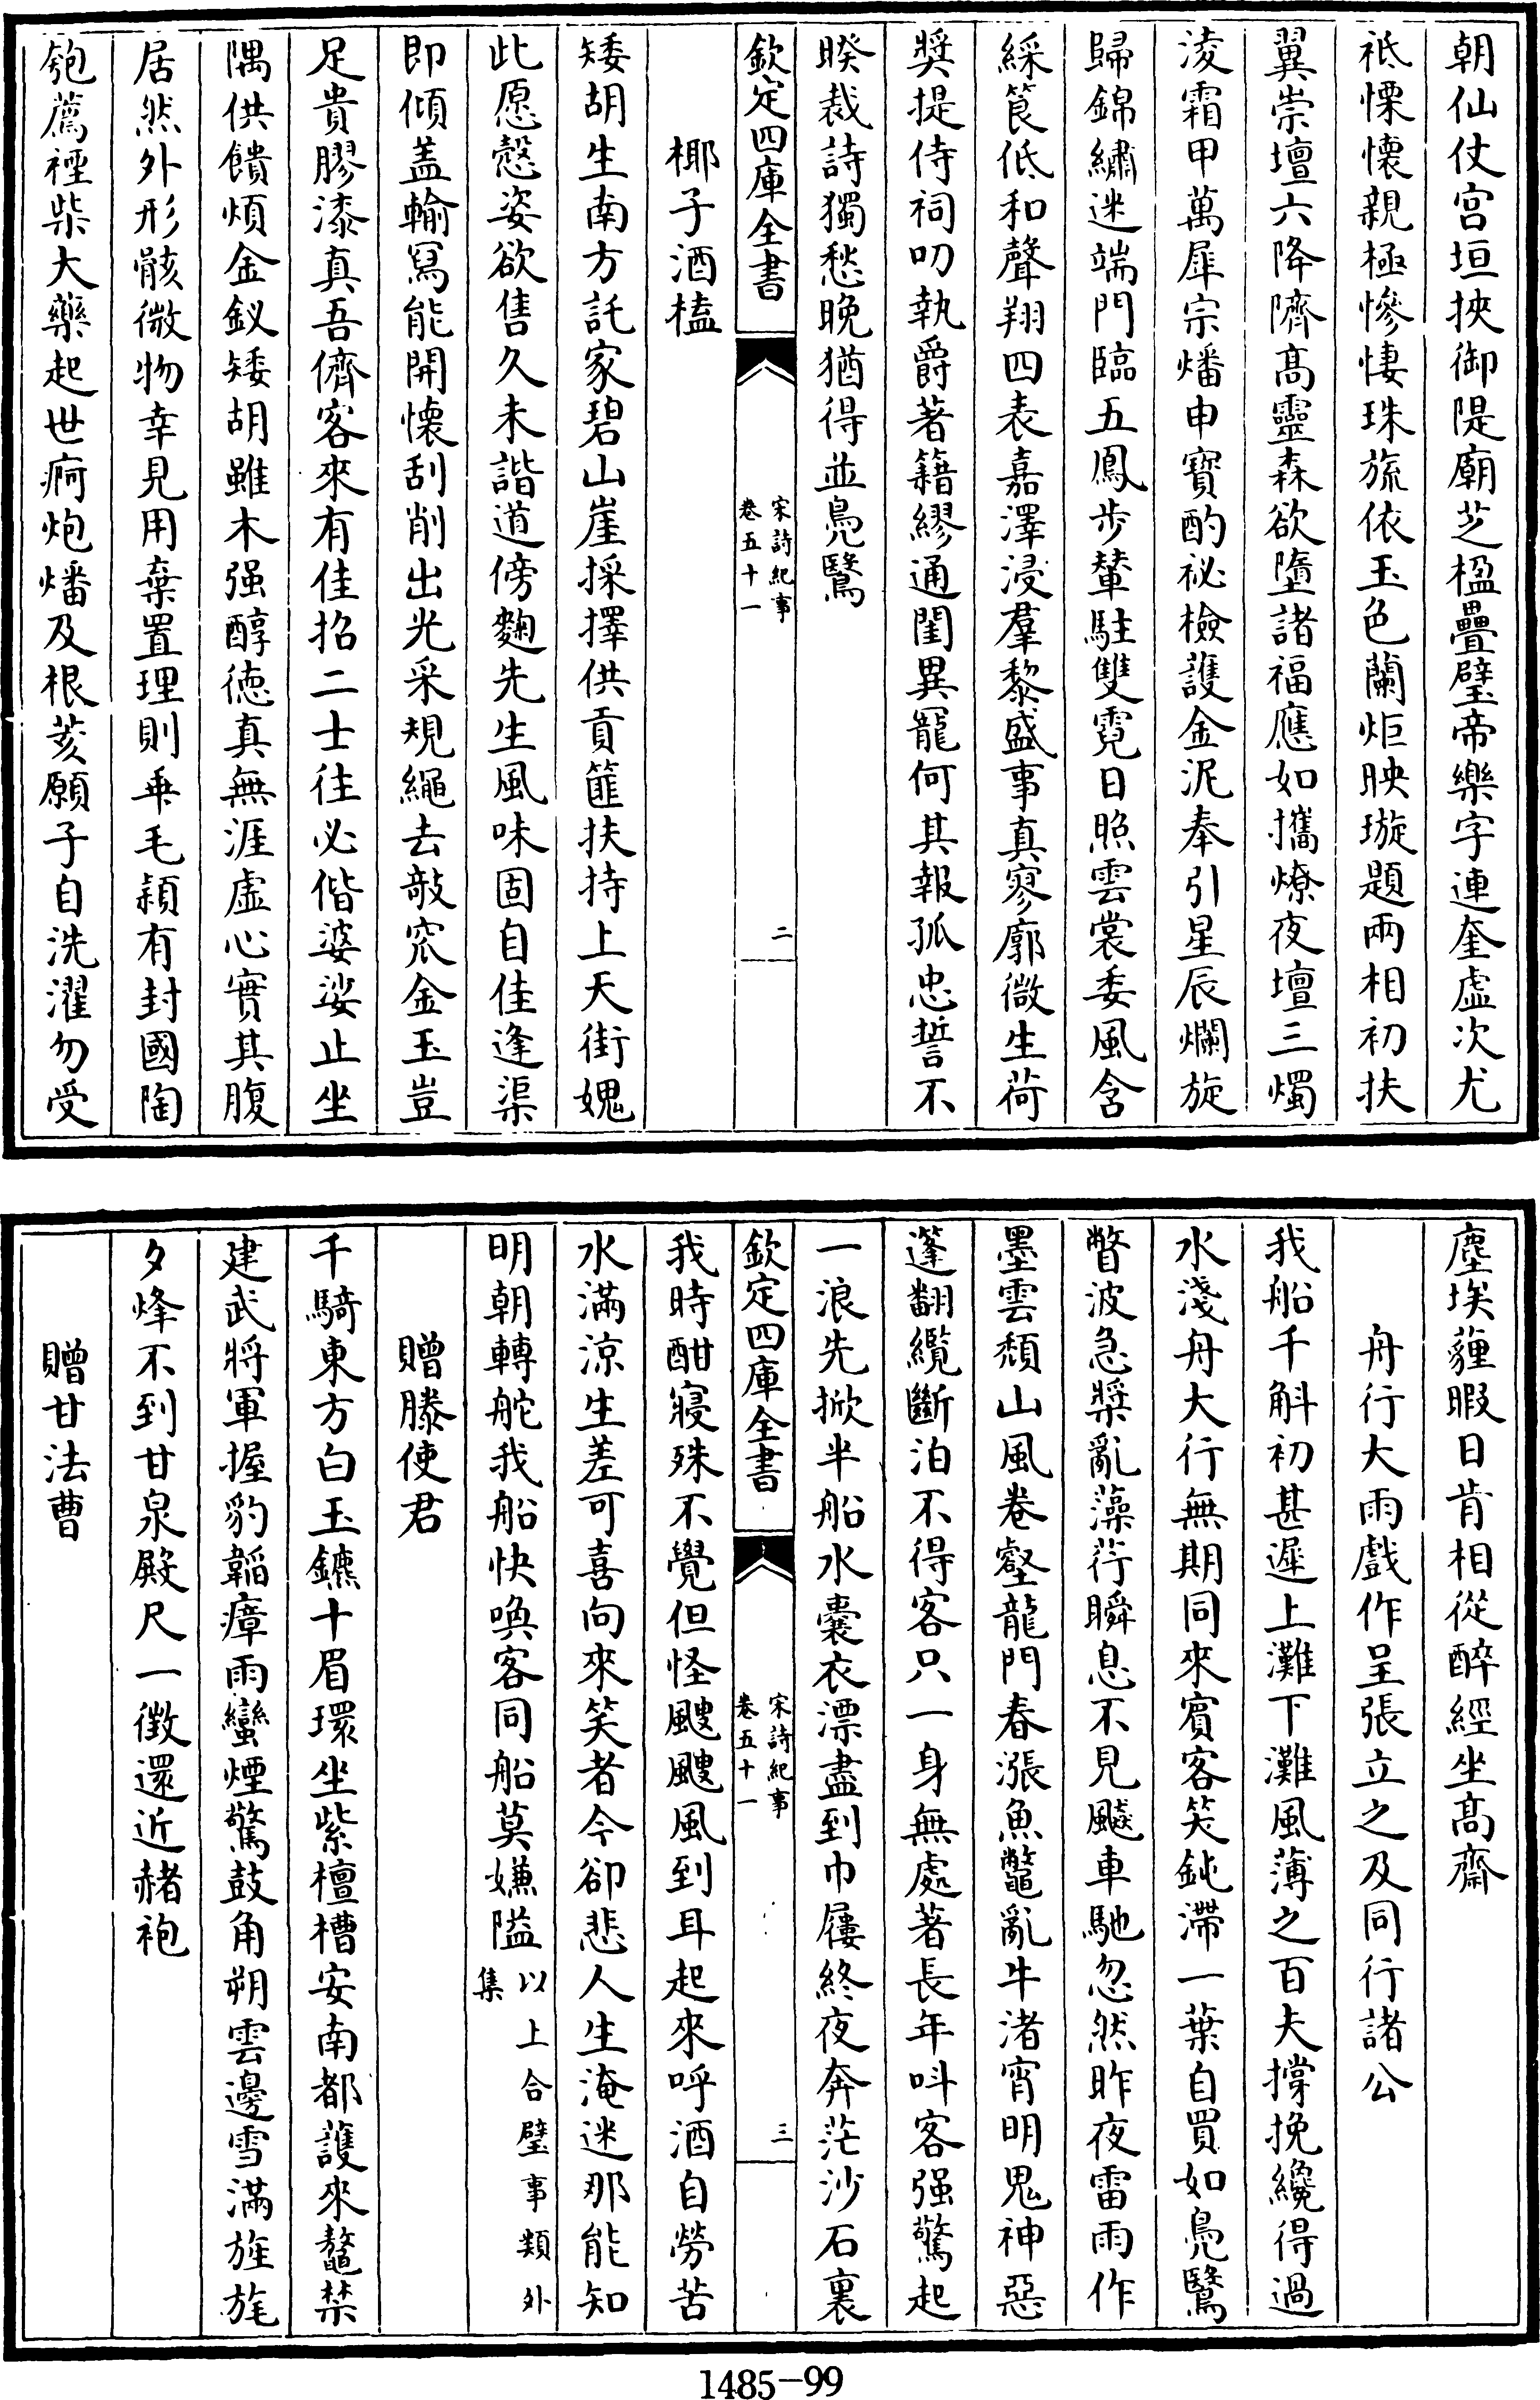 朝仙仗宫垣挾御隄廟芝楹疊璧帝樂字連奎虚次尤
祗慄懷親極慘悽珠旒依玉色蘭炬映璇題兩相初扶
翼崇壇六降隮髙靈森欲墮諸福應如攜燎夜壇三燭
淩霜甲萬犀宗燔申寶酌祕檢護金泥奉引星辰爛旋
歸錦繡迷端門臨五鳳步輦駐雙霓日照雲裳委風含
綵筤低和聲翔四表嘉澤浸羣黎盛事真寥廓微生荷
奬提侍祠叨執爵著籍繆通閨異寵何其報孤忠誓不
暌裁詩獨愁晚猶得並鳧鷖
欽定四庫全書
宋詩紀事
卷五十一
二
椰子酒榼
矮胡生南方託家碧山崖採擇供貢篚扶持上天街媿
此愿慤姿欲售久未諧道傍麴先生風味固自佳逢渠
即傾盖輸冩能開懷刮削出光采規繩去攲窊金玉豈
足貴膠漆真吾儕客來有佳招二士往必偕婆娑止坐
隅供饋煩金釵矮胡雖木强醇徳真無涯虚心實其腹
居然外形骸微物幸見用棄置理則乖毛穎有封國陶
匏薦禋柴大藥起世痾炮燔及根荄願子自洗濯勿受
塵埃薶暇日肯相從醉經坐髙齋
舟行大雨戲作呈張立之及同行諸公
我船千斛初甚遲上灘下灘風薄之百夫撐挽纔得過
水淺舟大行無期同來賓客笑鈍滯一葉自買如鳧鷖
瞥波急槳亂藻荇瞬息不見飈車馳忽然昨夜雷雨作
墨雲頽山風卷壑龍門春漲魚鼈亂牛渚宵明鬼神惡
蓬翻纜斷泊不得客只一身無處著長年叫客强驚起
一浪先掀半船水囊衣漂盡到巾屨終夜奔茫沙石裏
欽定四庫全書
宋詩紀事
卷五十一
三
我時酣寢殊不覺但怪颼颼風到耳起來呼酒自勞苦
水滿涼生差可喜向來笑者今卻悲人生淹迷那能知
明朝轉舵我船快喚客同船莫嫌隘以上合璧事類外
集
贈滕使君
千騎東方白玉鑣十眉環坐紫檀槽安南都護來鼇禁
建武將軍握豹韜瘴雨蠻煙驚鼓角朔雲邊雪滿旌旄
夕烽不到甘泉殿尺一徵還近赭袍
贈甘法曹
1485-99